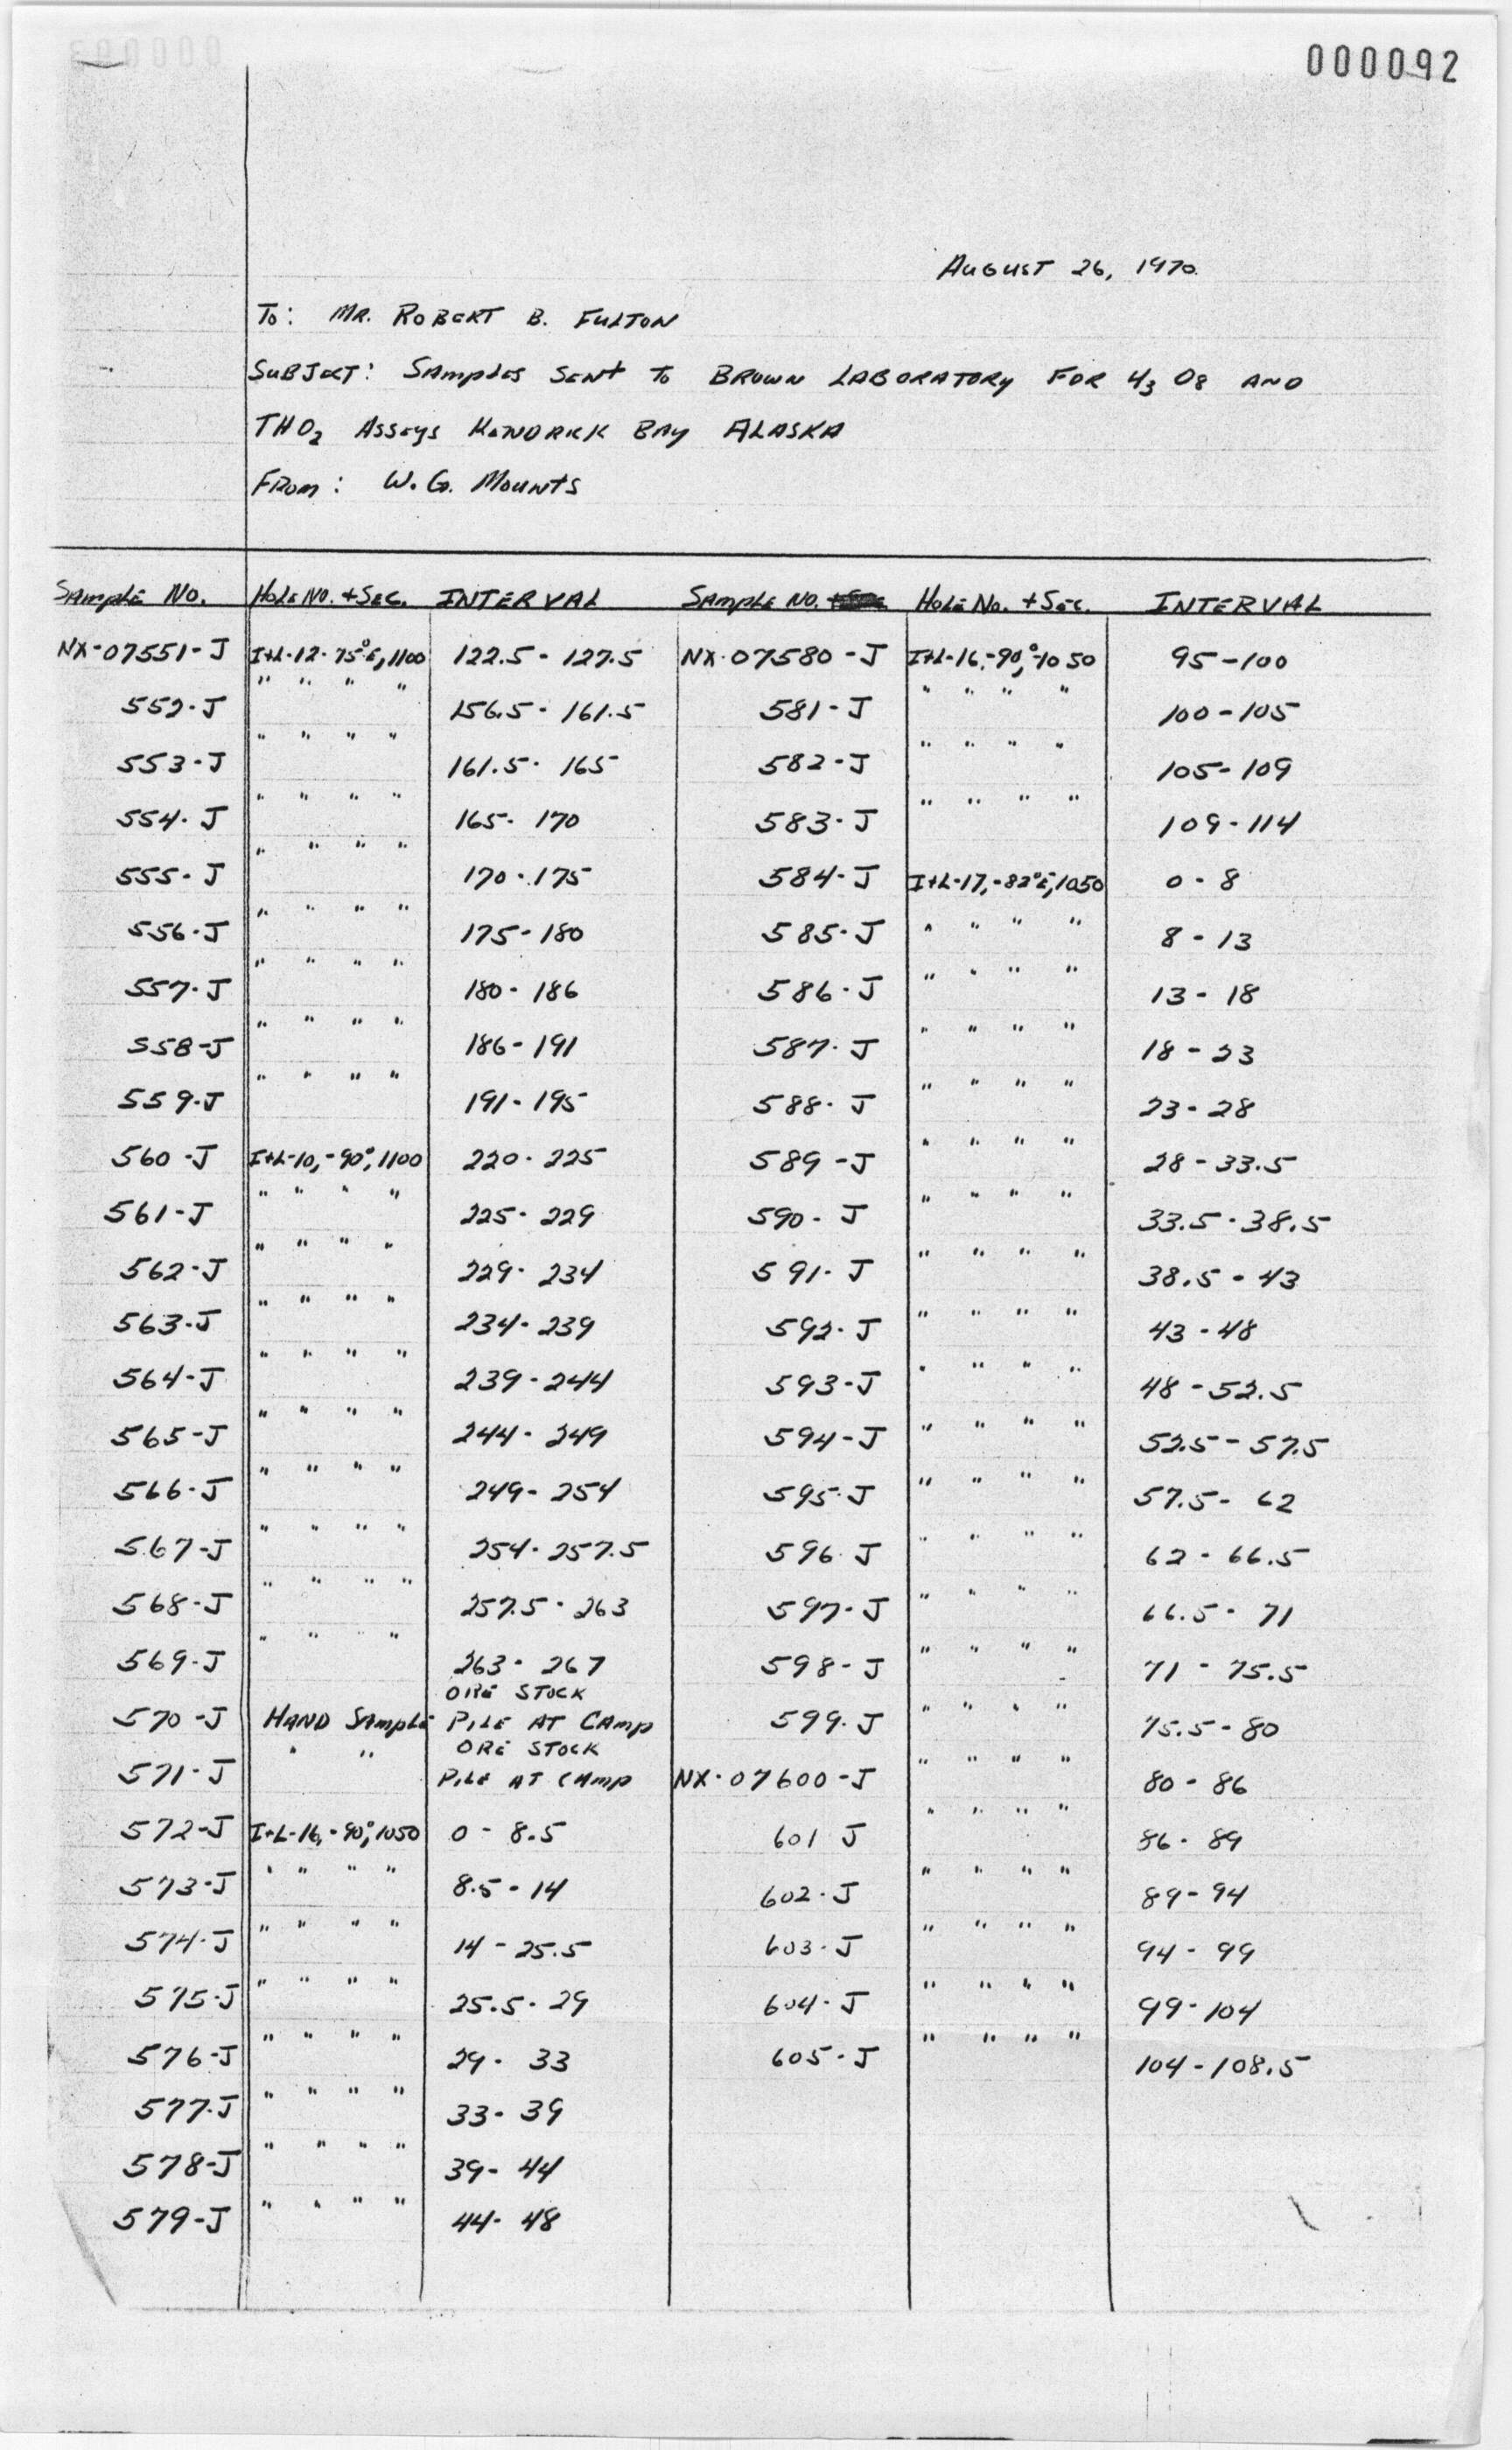 000092
August 26, 1970
To: Mr. Robert B. Fulton
Subject: Samples sent to Brown Laboratory for U3 O8 and
ThO2 Assays Kendrick Bay Alaska
From: W. G. Mounts
Sample No. Hole No. + Sec. INTERVAL Sample No. Hole No. + Sec. INTERVAL
NX-07551-J I+L-12-75°E, 1100 122.5 - 127.5 NX-07580-J I+L-16,-90,°1050 95-100
552-J " " " " 156.5 - 161.5 581-J " " " " 100-105
553-J " " " " 161.5 - 165 582-J " " " " 105-109
554-J " " " " 165 - 170 583-J " " " " 109-114
555-J " " " " 170 - 175 584-J I+L-17,-82°E, 1050 0 - 8
556-J " " " " 175-180 585-J " " " " 8 - 13
557-J " " " " 180 - 186 586-J " " " " 13 - 18
558-J " " " " 186 - 191 587-J " " " " 18 - 23
559-J " " " " 191 - 195 588-J " " " " 23 - 28
560-J I+L-10,-90°, 1100 220 - 225 589-J " " " " 28 - 33.5
561-J " " " " 225 - 229 590-J " " " " 33.5 - 38.5
562-J " " " " 229 - 234 591-J " " " " 38.5 - 43
563-J " " " " 234 - 239 592-J " " " " 43 - 48
564-J " " " " 239 - 244 593-J " " " " 48 - 52.5
565-J " " " " 244 - 249 594-J " " " " 52.5 - 57.5
566-J " " " " 249 - 254 595-J " " " " 57.5 - 62
567-J " " " " 254 - 257.5 596-J " " " " 62 - 66.5
568-J " " " " 257.5 - 263 597-J " " " " 66.5 - 71
569-J " " " " 263 - 267 598-J " " " " 71 - 75.5
ORE STOCK
570-J HAND Sample PILE AT CAmp 599-J " " " " 75.5 - 80
ORE STOCK
571-J " " PILE AT CAmp NX-07600-J " " " " 80 - 86
572-J I+L-16,-90°, 1050 0 - 8.5 601 J " " " " 86 - 89
573-J " " " " 8.5 - 14 602-J " " " " 89 - 94
574-J " " " " 14 - 25.5 603-J " " " " 94 - 99
575-J " " " " 25.5 - 29 604-J " " " " 99 - 104
576-J " " " " 29 - 33 605-J " " " " 104 - 108.5
577-J " " " " 33 - 39
578-J " " " " 39 - 44
579-J " " " " 44 - 48